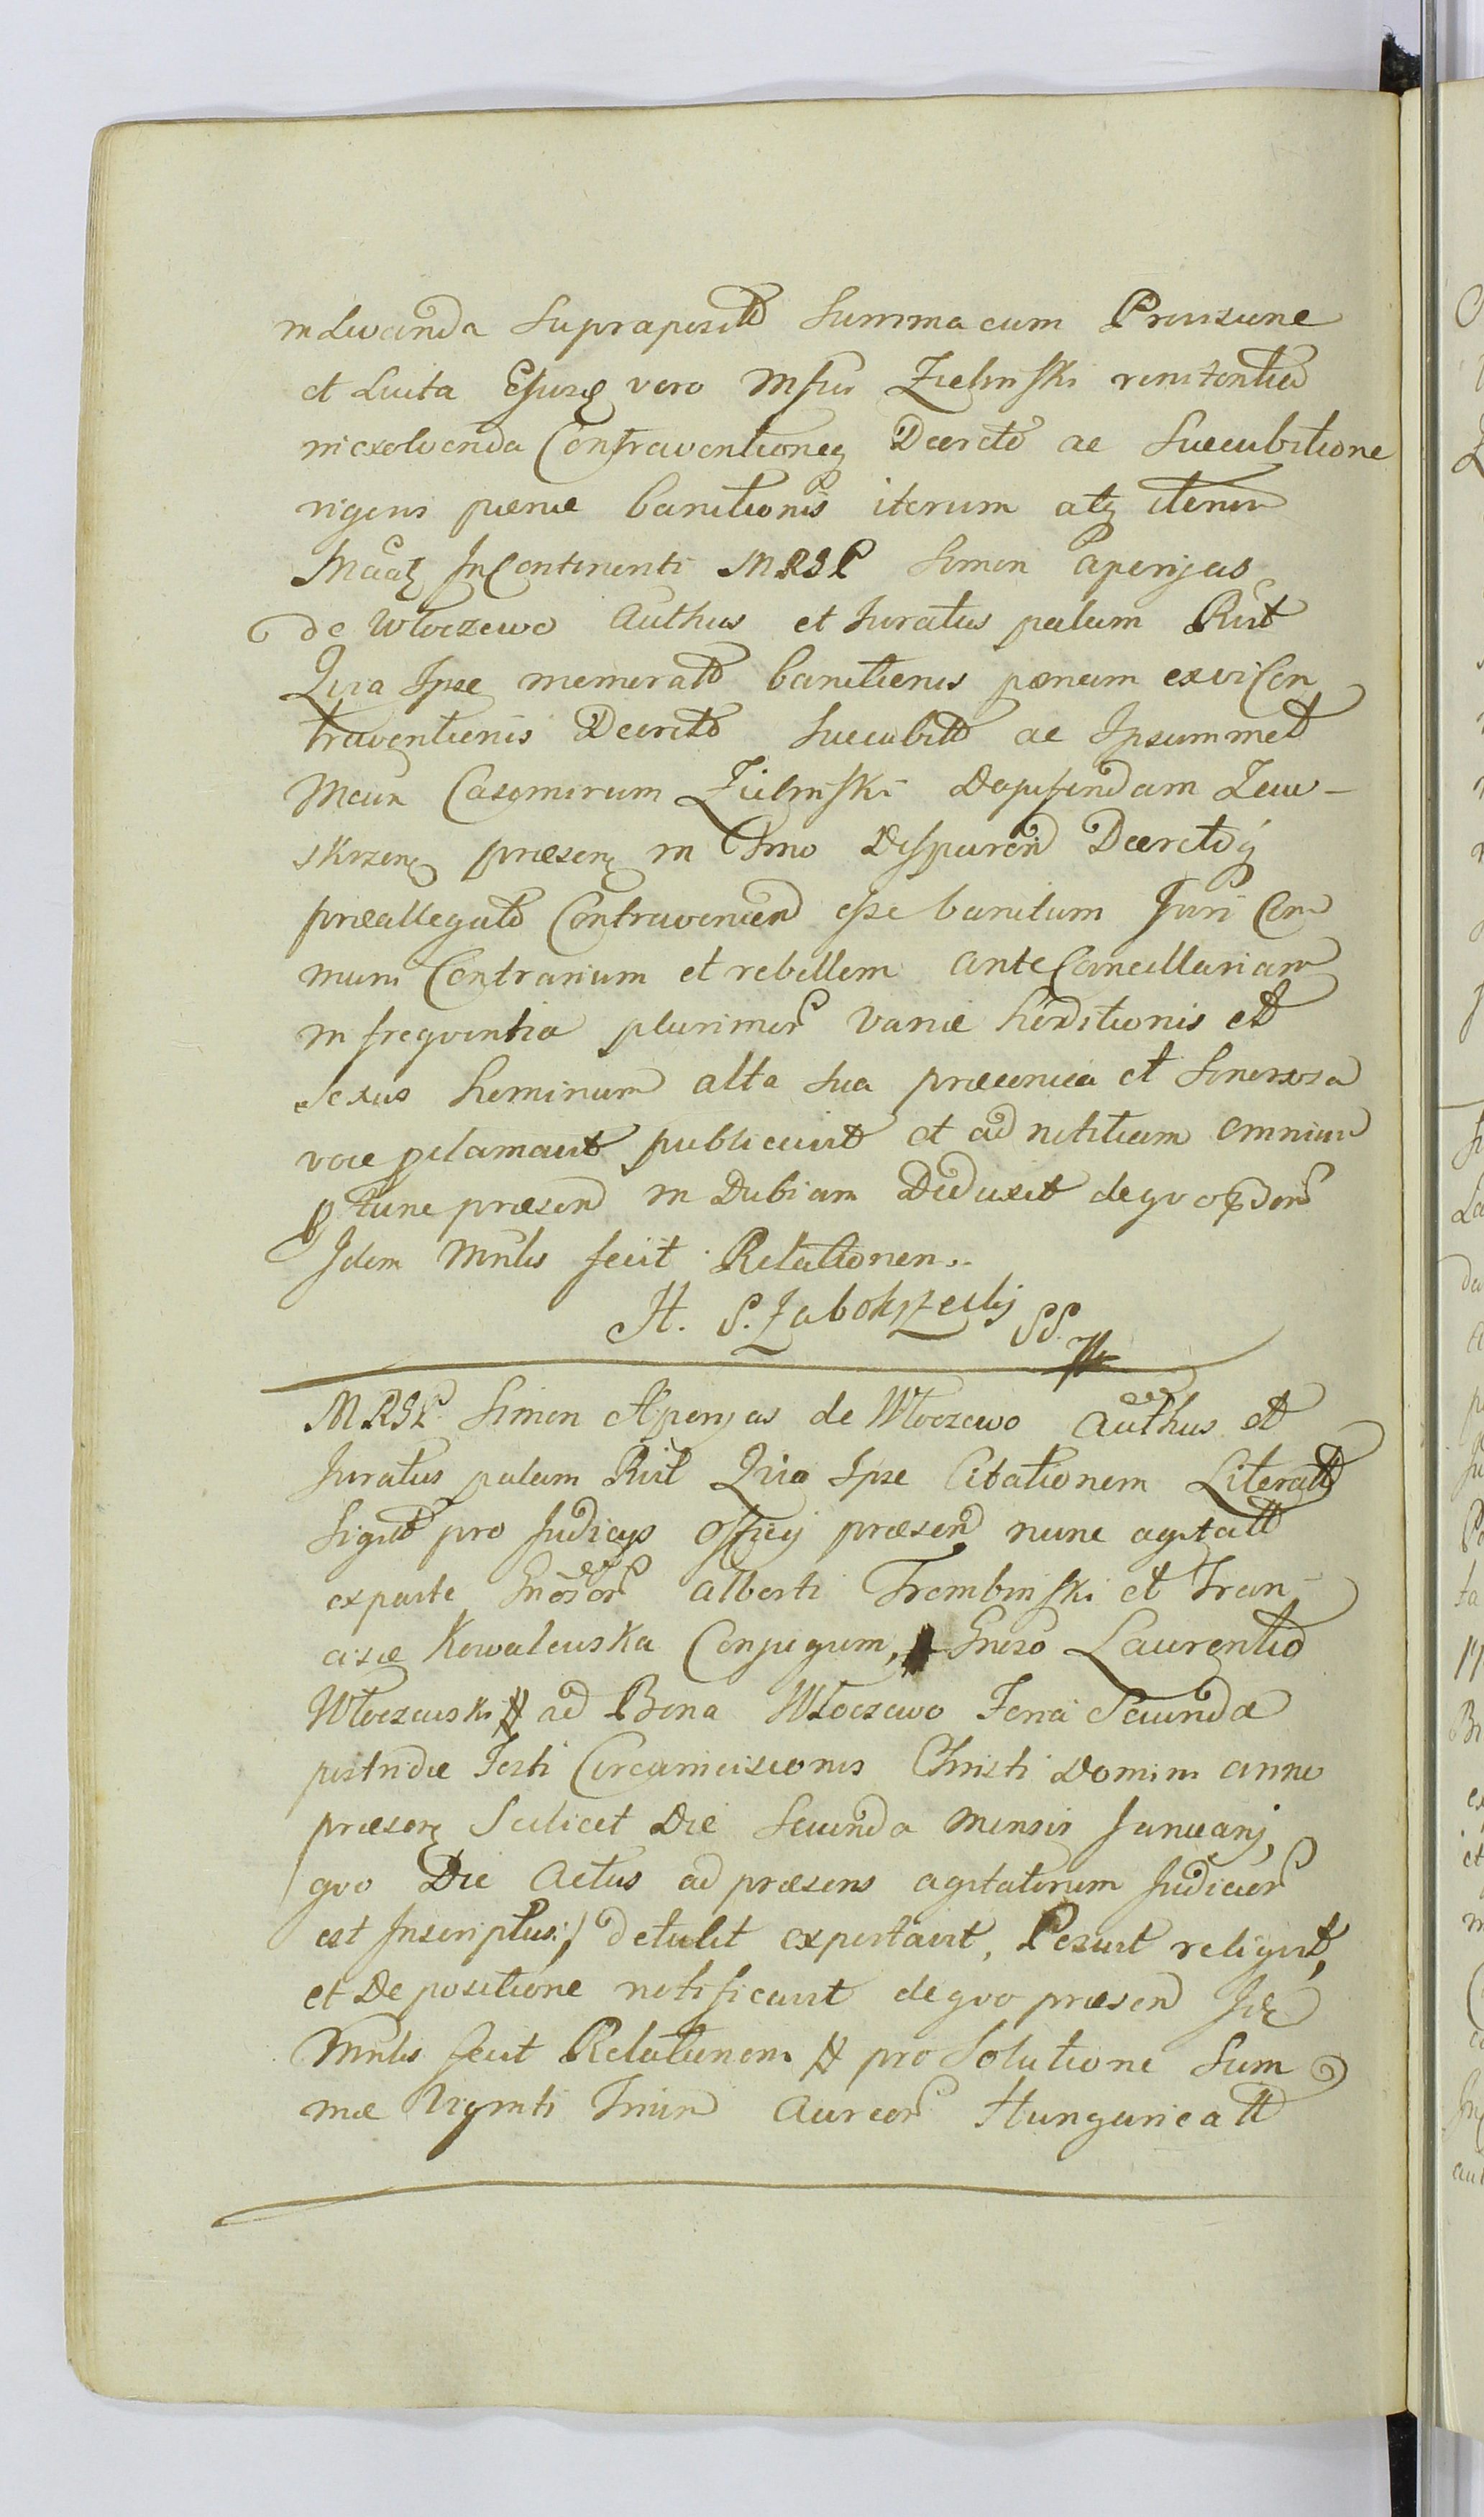 in Luanda Supraposit Summa cum Provisione
et Luita Ejusq vero Mfici Zielinski renitentia
in exolvenda Contraventioneq Decreto ac Succubitione
vigens pænæ banitionis iterum atq iterum
Mdatq In Continenti MRGL Simon Aperijas
de Włoczewo Authus et Juratus palam Rvit
Quia Ipse memorat banitionis pænam ex vi Con
traventionis Decreto Succubitt ac Ipsummet
Mcum Casimirum Zielinski Dapiferidam Zaw-
skrzen præsen in Tmo Disparen Decretoq
præallegato Contravenien esse banitum Juri Com
muni Contrarium et rebellem ante Cancellariam
in freqventia plurimor variæ Conditionis et
Sexus hominum alta sua præconica et Sonorosa
voce pclamavit publicavit et ad notitiam omnium
ptunc præsen in Dubiam Deduxit de qvo
Idem Mnlis fecit Relationem..
H. S. Zabokrzecky SS.
MRGL Simon Aperyas de Włoczewo Authus et
Juratus palam Rvit Quia Ipse Citationem Literatt
Sigitt pro Judicijs Officij præsen nunc agitatt
ex parte Gnosor Alberti Trembinski et Fran-
ciscæ Kowalewska Conjugum, Gneso Laurentio
Włoczewski # ad Bona Włoczewo Feria Secunda
postridie Festi Circumcisionis Christi Domini anno
præsen Scilicet Die Secunda Mensis Januarij,
qvo Die Actus ad præsens agitatorum Judicior
est Inscriptus:/ detulit exportavit, Posuit reliqvit,
et De positione notificavit de qvo præsen Ide
Mnlis fecit Relationem # pro Solutione Sum
mæ Viginti Trium Aureor Hungaricatt